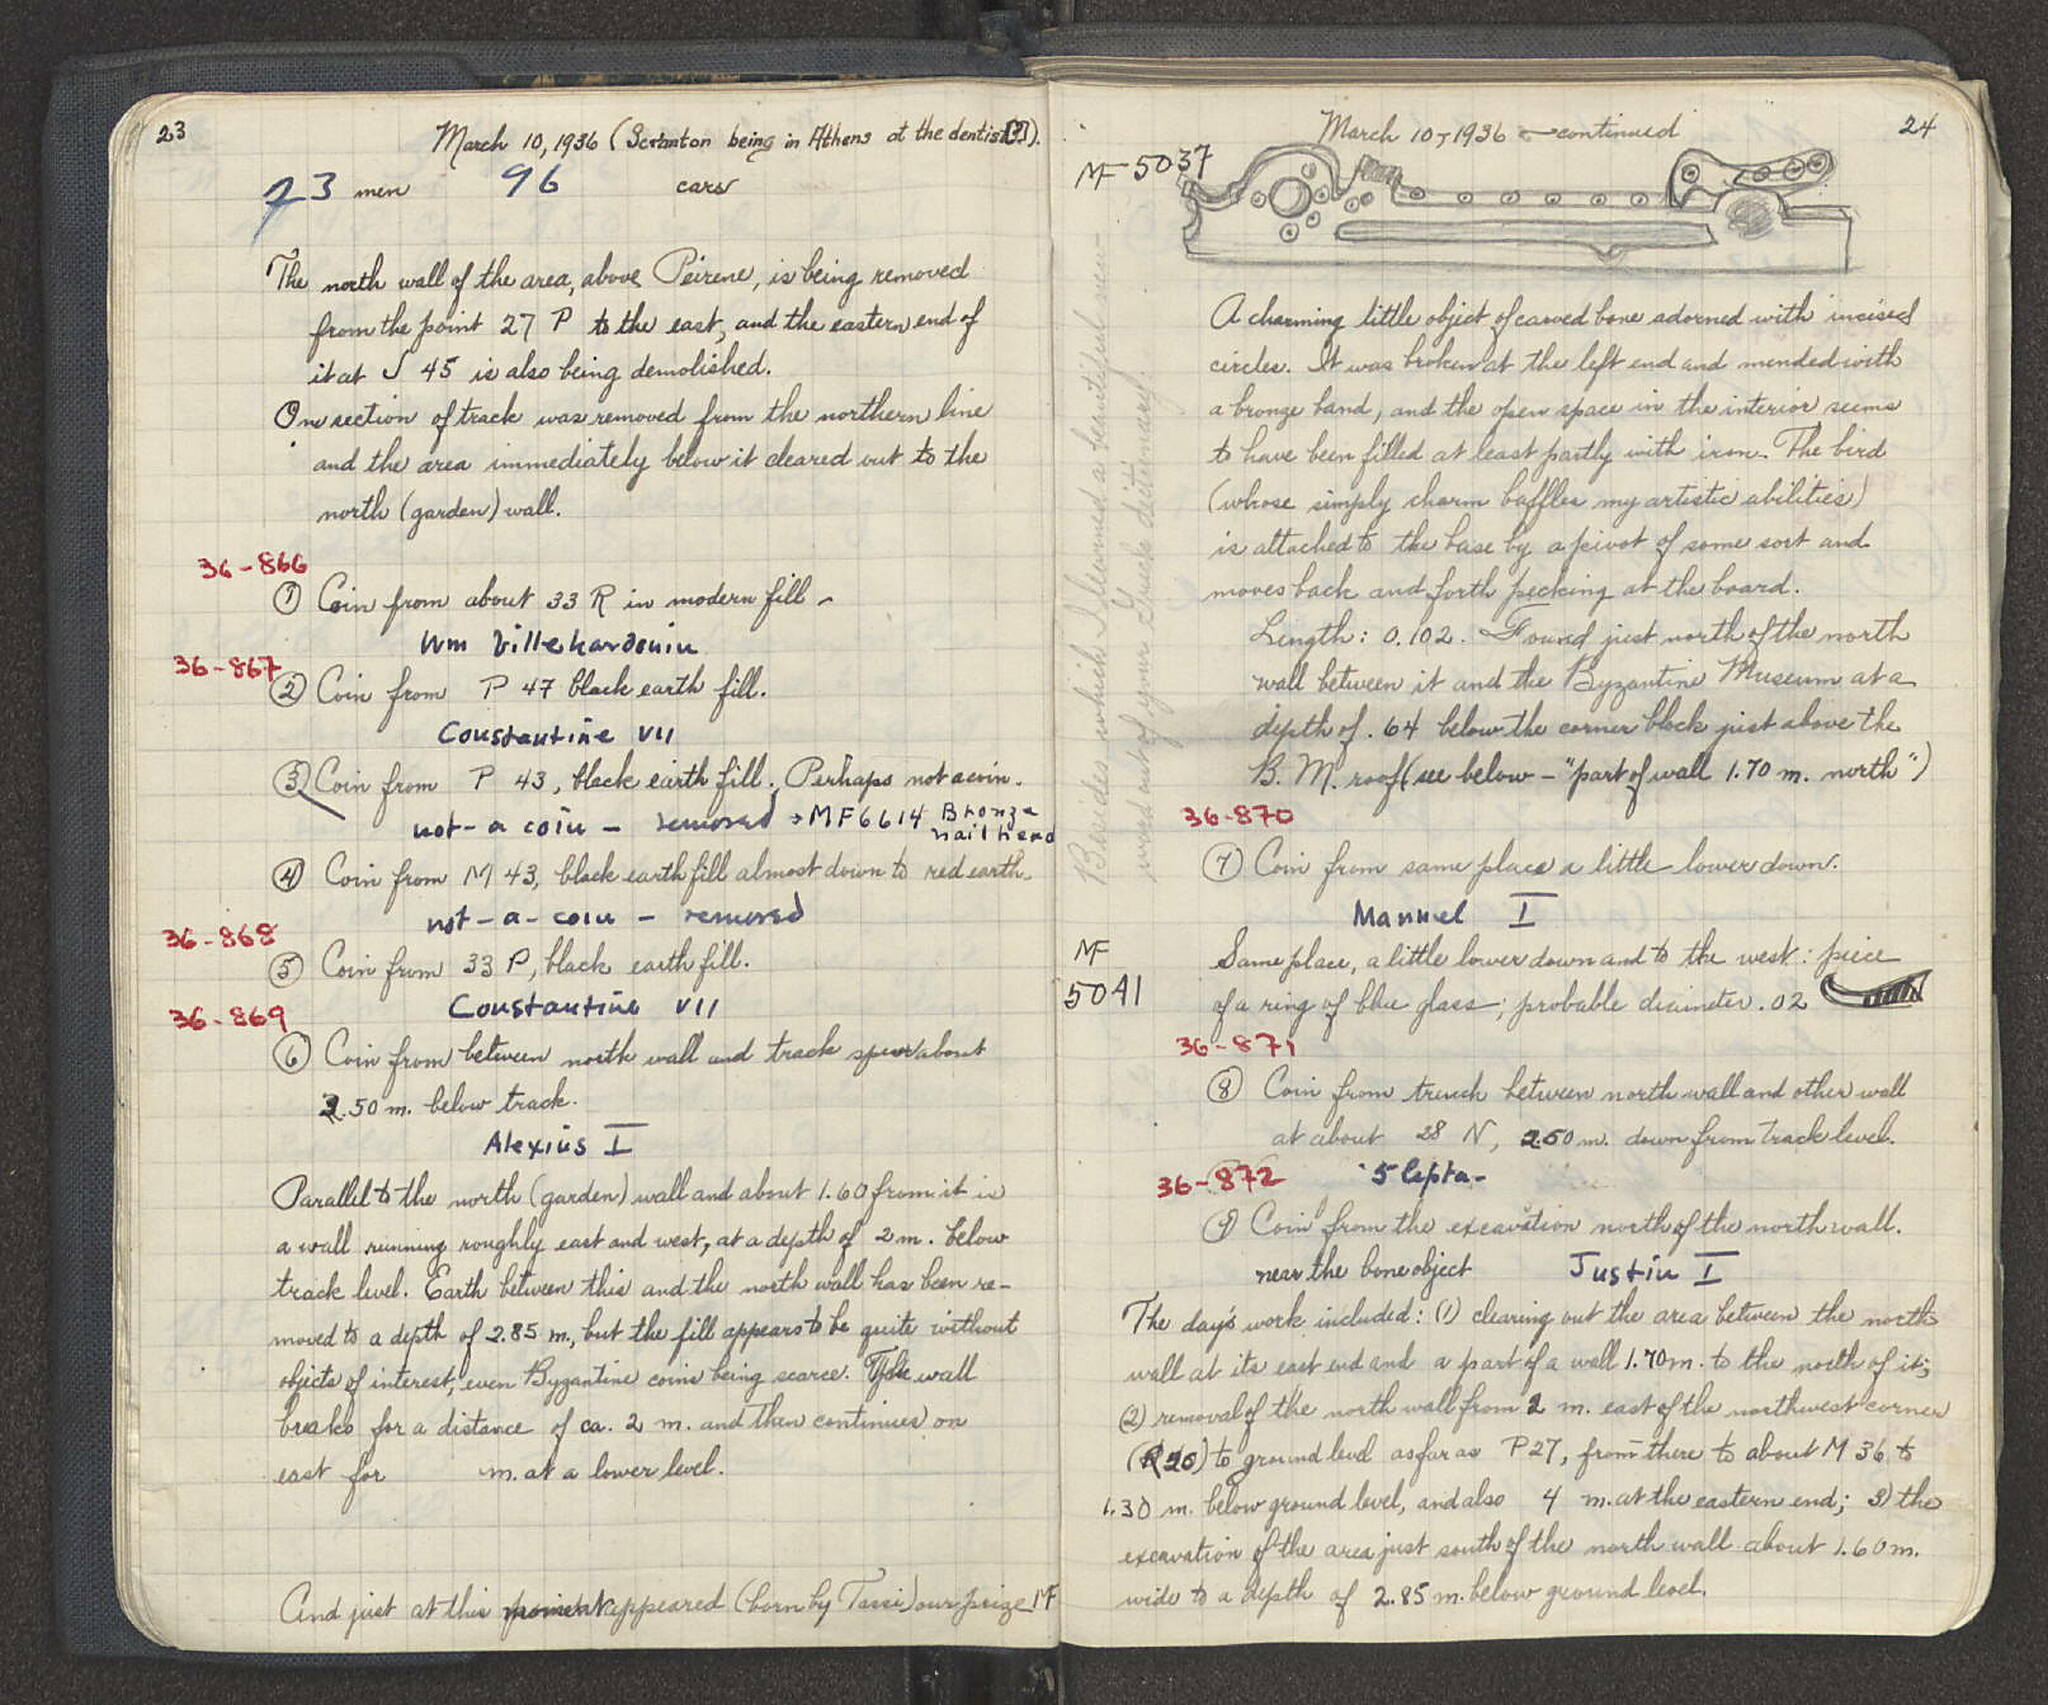 23
March 10, 1936 (Scranton being in Athens at the dentist[?]).
23 men 96 cars
The north wall of the area, above Peirene, is being removed
from the point 27 P to the east, and the eastern end of
it at J 45 is also being demolished.
One section of track was removed from the northern line
and the area immediately below it cleared out to the
north (garden) wall.
36-866
① Coin from about 33 R in modern fill -
Wm Villehardouin
36-867
② Coin from P 47 black earth fill.
Constantine VII
③ Coin from P 43, black earth fill. Perhaps not a coin.
not-a coin - removed → MF6614 Bronze
nail head
④ Coin from M 43, black earth fill almost down to red earth.
not-a-coin - removed
36-868
⑤ Coin from 33 P, black earth fill.
Constantine VII
36-869
⑥ Coin from between north wall and track spur about
2.50 m. below track.
Alexius I
Parallel to the north (garden) wall and about 1.60 from it is
a wall running roughly east and west, at a depth of 2 m. below
track level. Earth between this and the north wall has been re-
moved to a depth of 2.85 m., but the fill appears to be quite without
objects of interest, even Byzantine coins being scarce. The wall
breaks for a distance of ca. 2 m. and then continues on
east for m. at a lower level.
And just at this moment appeared (born by Tassi) our prize MF
24
March 10, 1936 - continued
MF 5037
A charming little object of carved bone adorned with incised
circles. It was broken at the left end and mended with
a bronze band, and the open space in the interior seems
to have been filled at least partly with iron. The bird
(whose simply charm baffles my artistic abilities)
is attached to the base by a pivot of some sort and
moves back and forth pecking at the board.
Length: 0.102. Found just north of the north
wall between it and the Byzantine Museum at a
depth of .64 below the corner block just above the
B. M. roof (see below - "part of wall 1.70 m. north")
Besides which I learned a beautiful new
word out of your Greek dictionary.
36-870
⑦ Coin from same place a little lower down.
Manuel I
MF
5041
Same place, a little lower down and to the west: piece
of a ring of blue glass; probable diameter .02
36-871
⑧ Coin from trench between north wall and other wall
at about 28 N, 2.50 m. down from track level.
5 lepta-
36-872
⑨ Coin from the excavation north of the north wall.
near the bone object Justin I
The day's work included: (1) clearing out the area between the north
wall at its east end and a part of a wall 1.70 m. to the north of it;
(2) removal of the north wall from 2 m. east of the northwest corner
(R 20) to ground level as far as P 27, from there to about M 36 to
1.30 m. below ground level, and also 4 m. at the eastern end; 3) the
excavation of the area just south of the north wall about 1.60 m.
wide to a depth of 2.85 m. below ground level.